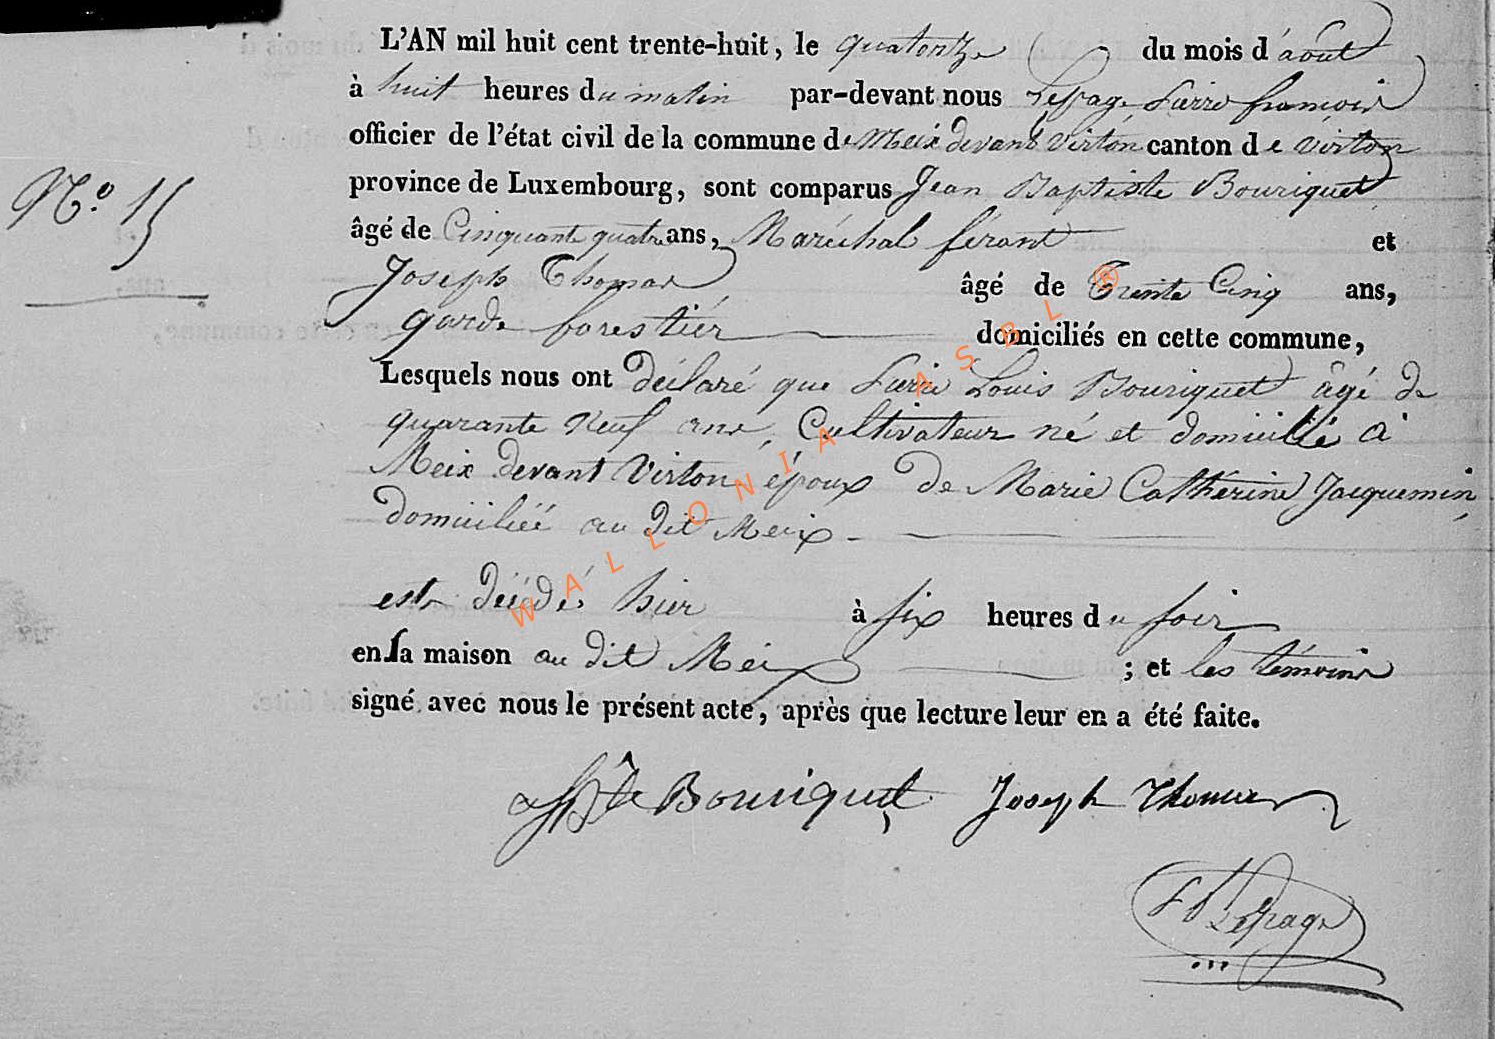 L'AN mil huit cent trente-huit, le quatorze du mois d'août
à huit heures du matin par-devant nous Lepage Pierre françois
officier de l'état civil de la commune de Meix devant Virton canton de Virton
province de Luxembourg, sont comparus Jean Baptiste Bouriquet
N.° 15
âgé de Cinquante quatre ans, Maréchal férant et
Joseph Thomas âgé de Trente Cinq ans,
garde forestiér domiciliés en cette commune,
Lesquels nous ont déclaré que Pierre Louis Bouriquet âgé de
quarante Neuf ans, Cultivateur né et domicilié à
Meix devant Virton époux de Marie Catherine Jacquemin,
domiciliéé au dit Meix
est décédé hier à six heures du soir
en sa maison au dit Meix ; et les témoins
signé avec nous le présent acte, après que lecture leur en a été faite.
Bouriquet Joseph Thomas
Lepage
WALLONIA ASBL ®